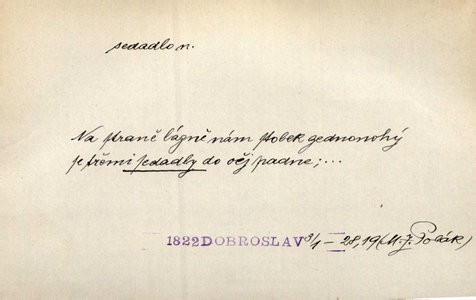 sedadlo n.
Na straně lázně nám stolek gednonohý
se třěmi sedadly do očj padne; ...
1822 DOBROSLAV 3/1 – 28, 19 (M. J. Polák)